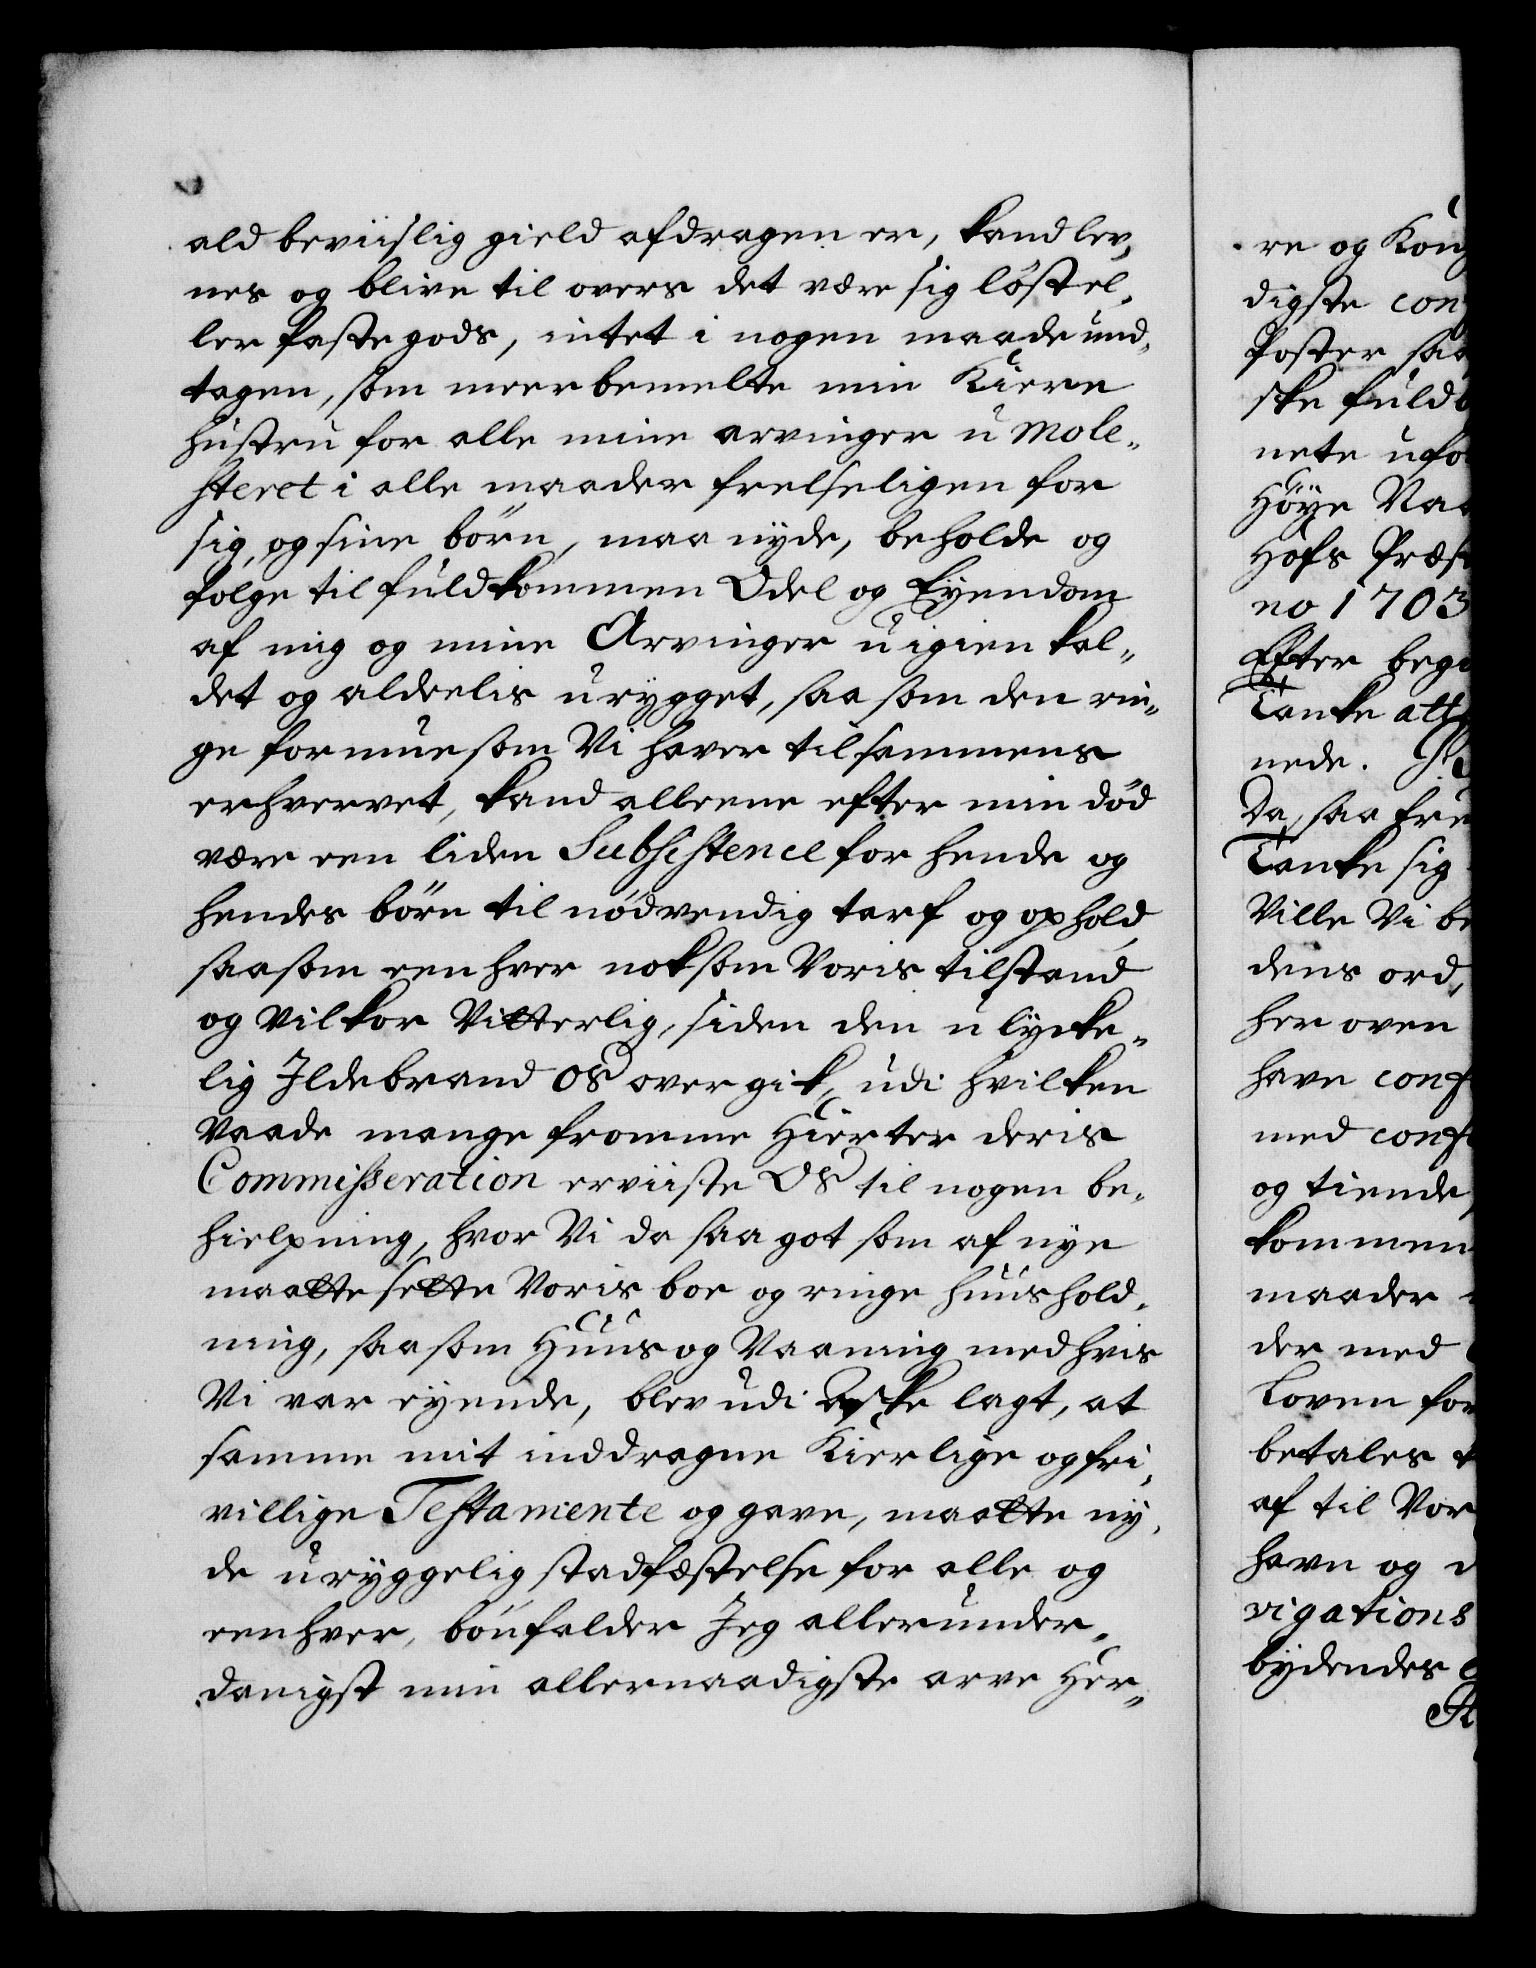 ald beviislig gield afdragen er, kand lev„
nes og blive til overs det være sig löst el„
ler faste gods, intet i nogen maade und„
tagen, som meerbemelte min Kiere
hustru for alle mine arvinger u mole„
steret i alle maader frelseligen for
sig, og sine börn, maa nyde, beholde og
følge til fuldkommen Odel og Eyendom
af mig og mine Arvinger uigien kal„
det og aldeelis urygget, saa som den rin„
ge formue som Vi haver tilsammens
erhvervet, kand alleene efter min död
være een liden Subsistence for hende og
hendes börn til nödvendig tarf og ophold,
saasom een hver noksom Voris tilstand
og Vilkor Vitterlig, siden den ulycke„
lig Ildebrand os overgik, udi hvilken
Vaade mange fromme Hierter deris
Commisseration erviiste Os til nogen be„
hielpning, hvor Vi da saa got som af nye
maatte sette Voris boe og ringe huushold„
ning, saasom Huus og Vaaning med hvis
Vi var eyende, blev udi Aske lagt, at
samme mit inddragne Kierlige og fri„
villige Testamente og gave, maatte ny„
de uryggelig stadfæstelse for alle og
eenhver, bönfalder Jeg allerunder„
danigst min allernaadigste arve Her„
re og Kong
digste con
Poster saa
ske fuld
nete ufo
Höye Naa
Hofs Præs
no 1703
Efter beg
Tanke att
nede.
Da, saa fre
Tanke sig
Ville Vi be
dens ord,
her oven
have conf
med conf
og tiende
kommen
maader
der med
Loven for
betales
af til Vor
havn og
vigations
bydendes